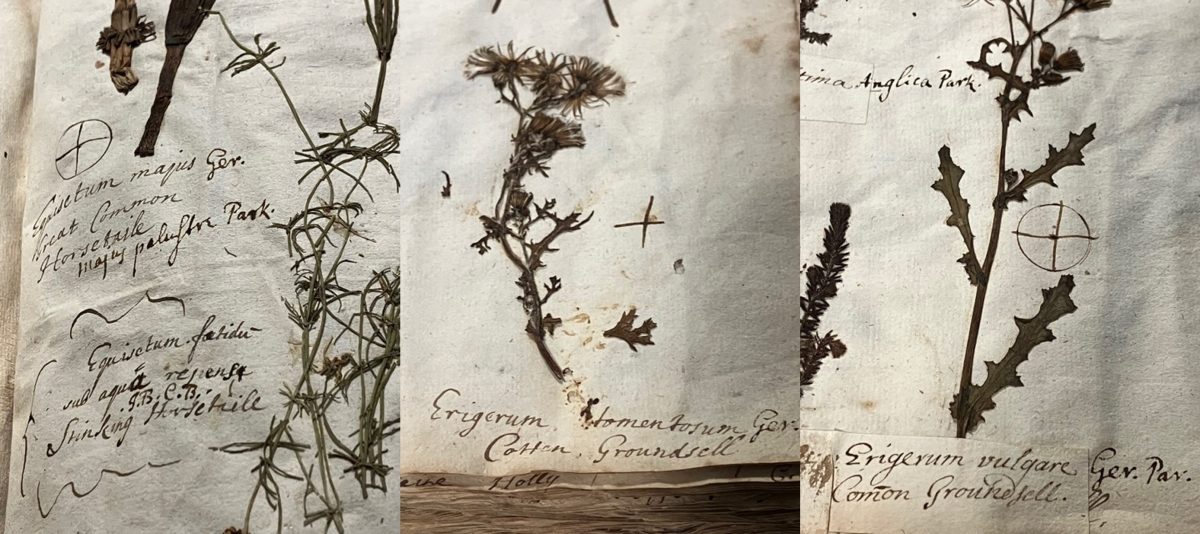 Equisetum majus Ger.
Great Common
Horsetaile
majus palustre Park.
Equisetum fœtidū
sub aquâ repens
J.B. C.B.
Stinking Horsetaile
Erigerum tomentosum Ger.
Cotten Groundsell
Holly
tima Anglica Park.
Erigerum vulgare Ger. Par.
Com̄on Groundsell.